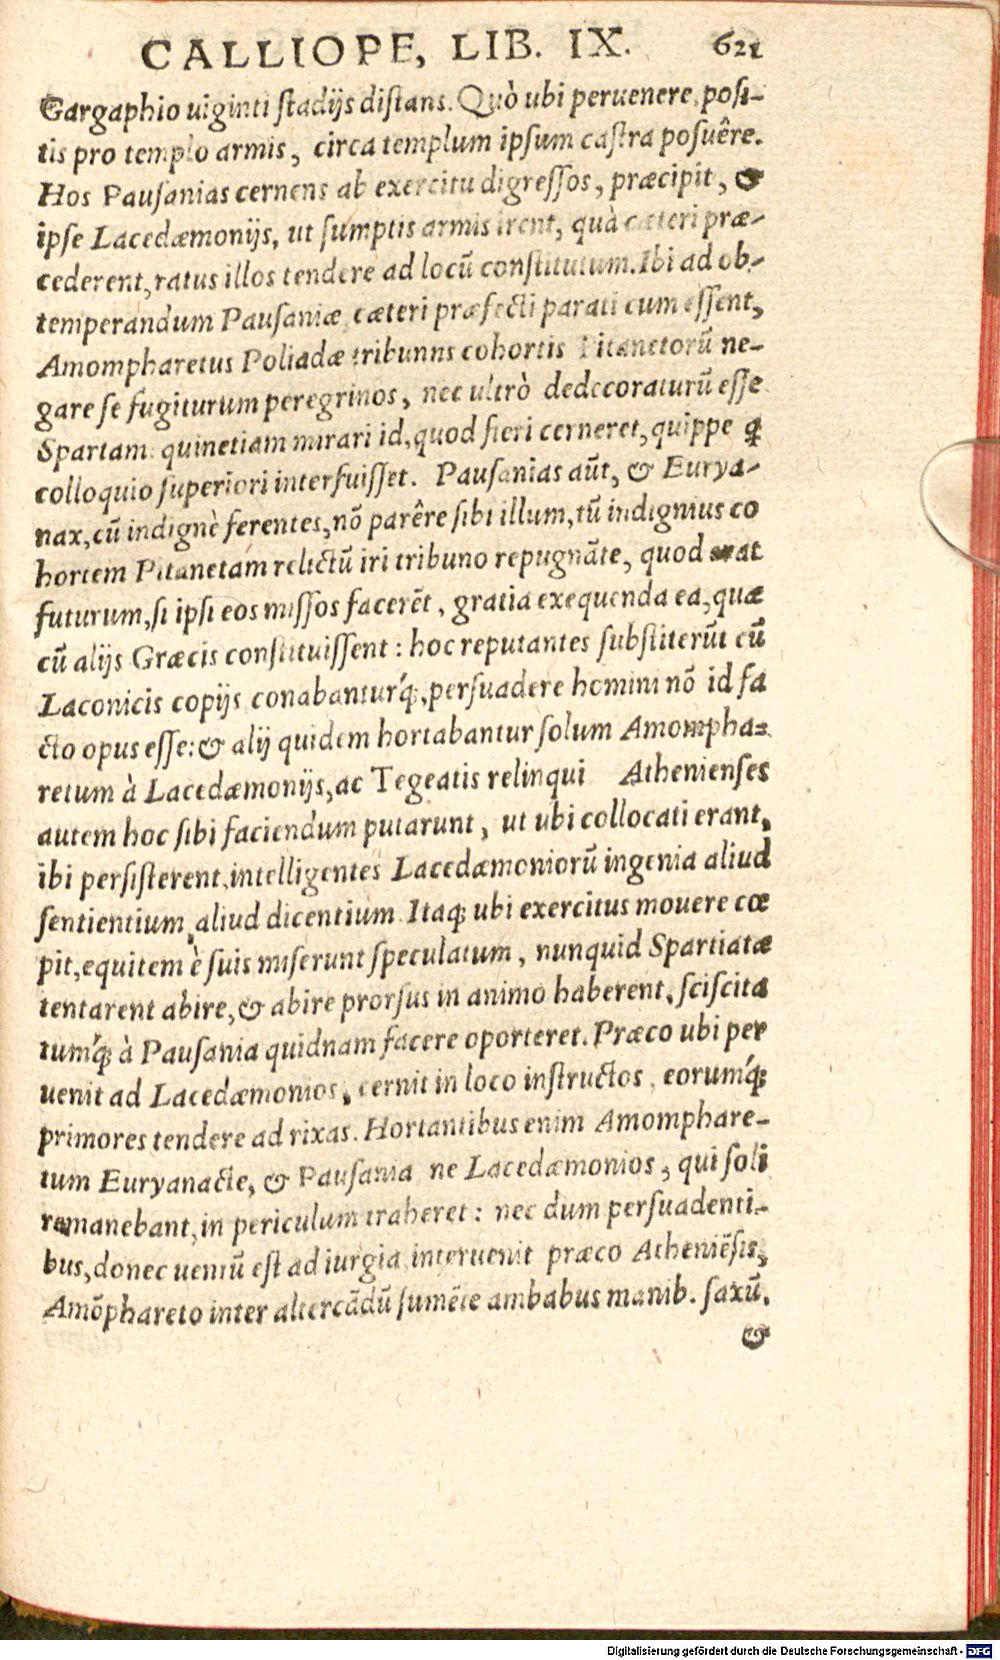 CALLIOPE, LIB. IX. 621
Gargaphio uiginti ſtadijs diſtans. Quò ubi peruenere, poſi-
tis pro templo armis, circa templum ipſum caſtra poſuêre.
Hos Pauſanias cernens ab exercitu digreſſos, præcipit, &
ipſe Lacedæmonijs, ut ſumptis armis irent, quà cæteri præ-
cederent, ratus illos tendere ad locũ conſtitutum. Ibi ad ob-
temperandum Pauſaniæ, cæteri præfecti parati cum eſſent,
Amompharetus Poliadæ tribunns cohortis Pitanetorũ ne-
gare ſe fugiturum peregrinos, nec ultrò dedecoraturũ eſſe
Spartam: quinetiam mirari id, quod fieri cerneret, quippe ꝗ
colloquio ſuperiori interfuiſſet. Pauſanias aũt, & Eurya-
nax, cũ indignè ferentes, nõ parêre ſibi illum, tũ indignius co
hortem Pitanetam relictũ iri tribuno repugnãte, quod erat
futurum, ſi ipſi eos miſſos facerẽt, gratia exequenda ea, quæ
cũ alijs Græcis conſtituiſſent: hoc reputantes ſubſtiterũt cũ
Laconicis copijs conabanturq́;, perſuadere homini nõ id fa
cto opus eſſe: & alij quidem hortabantur ſolum Amompha-
retum à Lacedæmonijs, ac Tegeatis relinqui Athenienſes
autem hoc ſibi faciendum putarunt, ut ubi collocati erant,
ibi perſiſterent, intelligentes Lacedæmoniorũ ingenia aliud
ſentientium, aliud dicentium. Itaq; ubi exercitus mouere cœ
pit, equitem è ſuis miſerunt ſpeculatum, nunquid Spartiatæ
tentarent abire, & abire prorſus in animo haberent, ſciſcita
tumq́; à Pauſania quidnam facere oporteret. Præco ubi per
uenit ad Lacedæmonios, cernit in loco inſtructos, eorumq́;
primores tendere ad rixas. Hortantibus enim Amomphare-
tum Euryanacte, & Pauſania ne Lacedæmonios, qui ſoli
remanebant, in periculum traheret: nec dum perſuadenti-
bus, donec uentũ eſt ad iurgia, interuenit præco Atheniẽſis,
Amõphareto inter altercãdũ ſumẽte ambabus manib. ſaxũ,
&
Digitalisierung gefördert durch die Deutsche Forschungsgemeinschaft - DFG